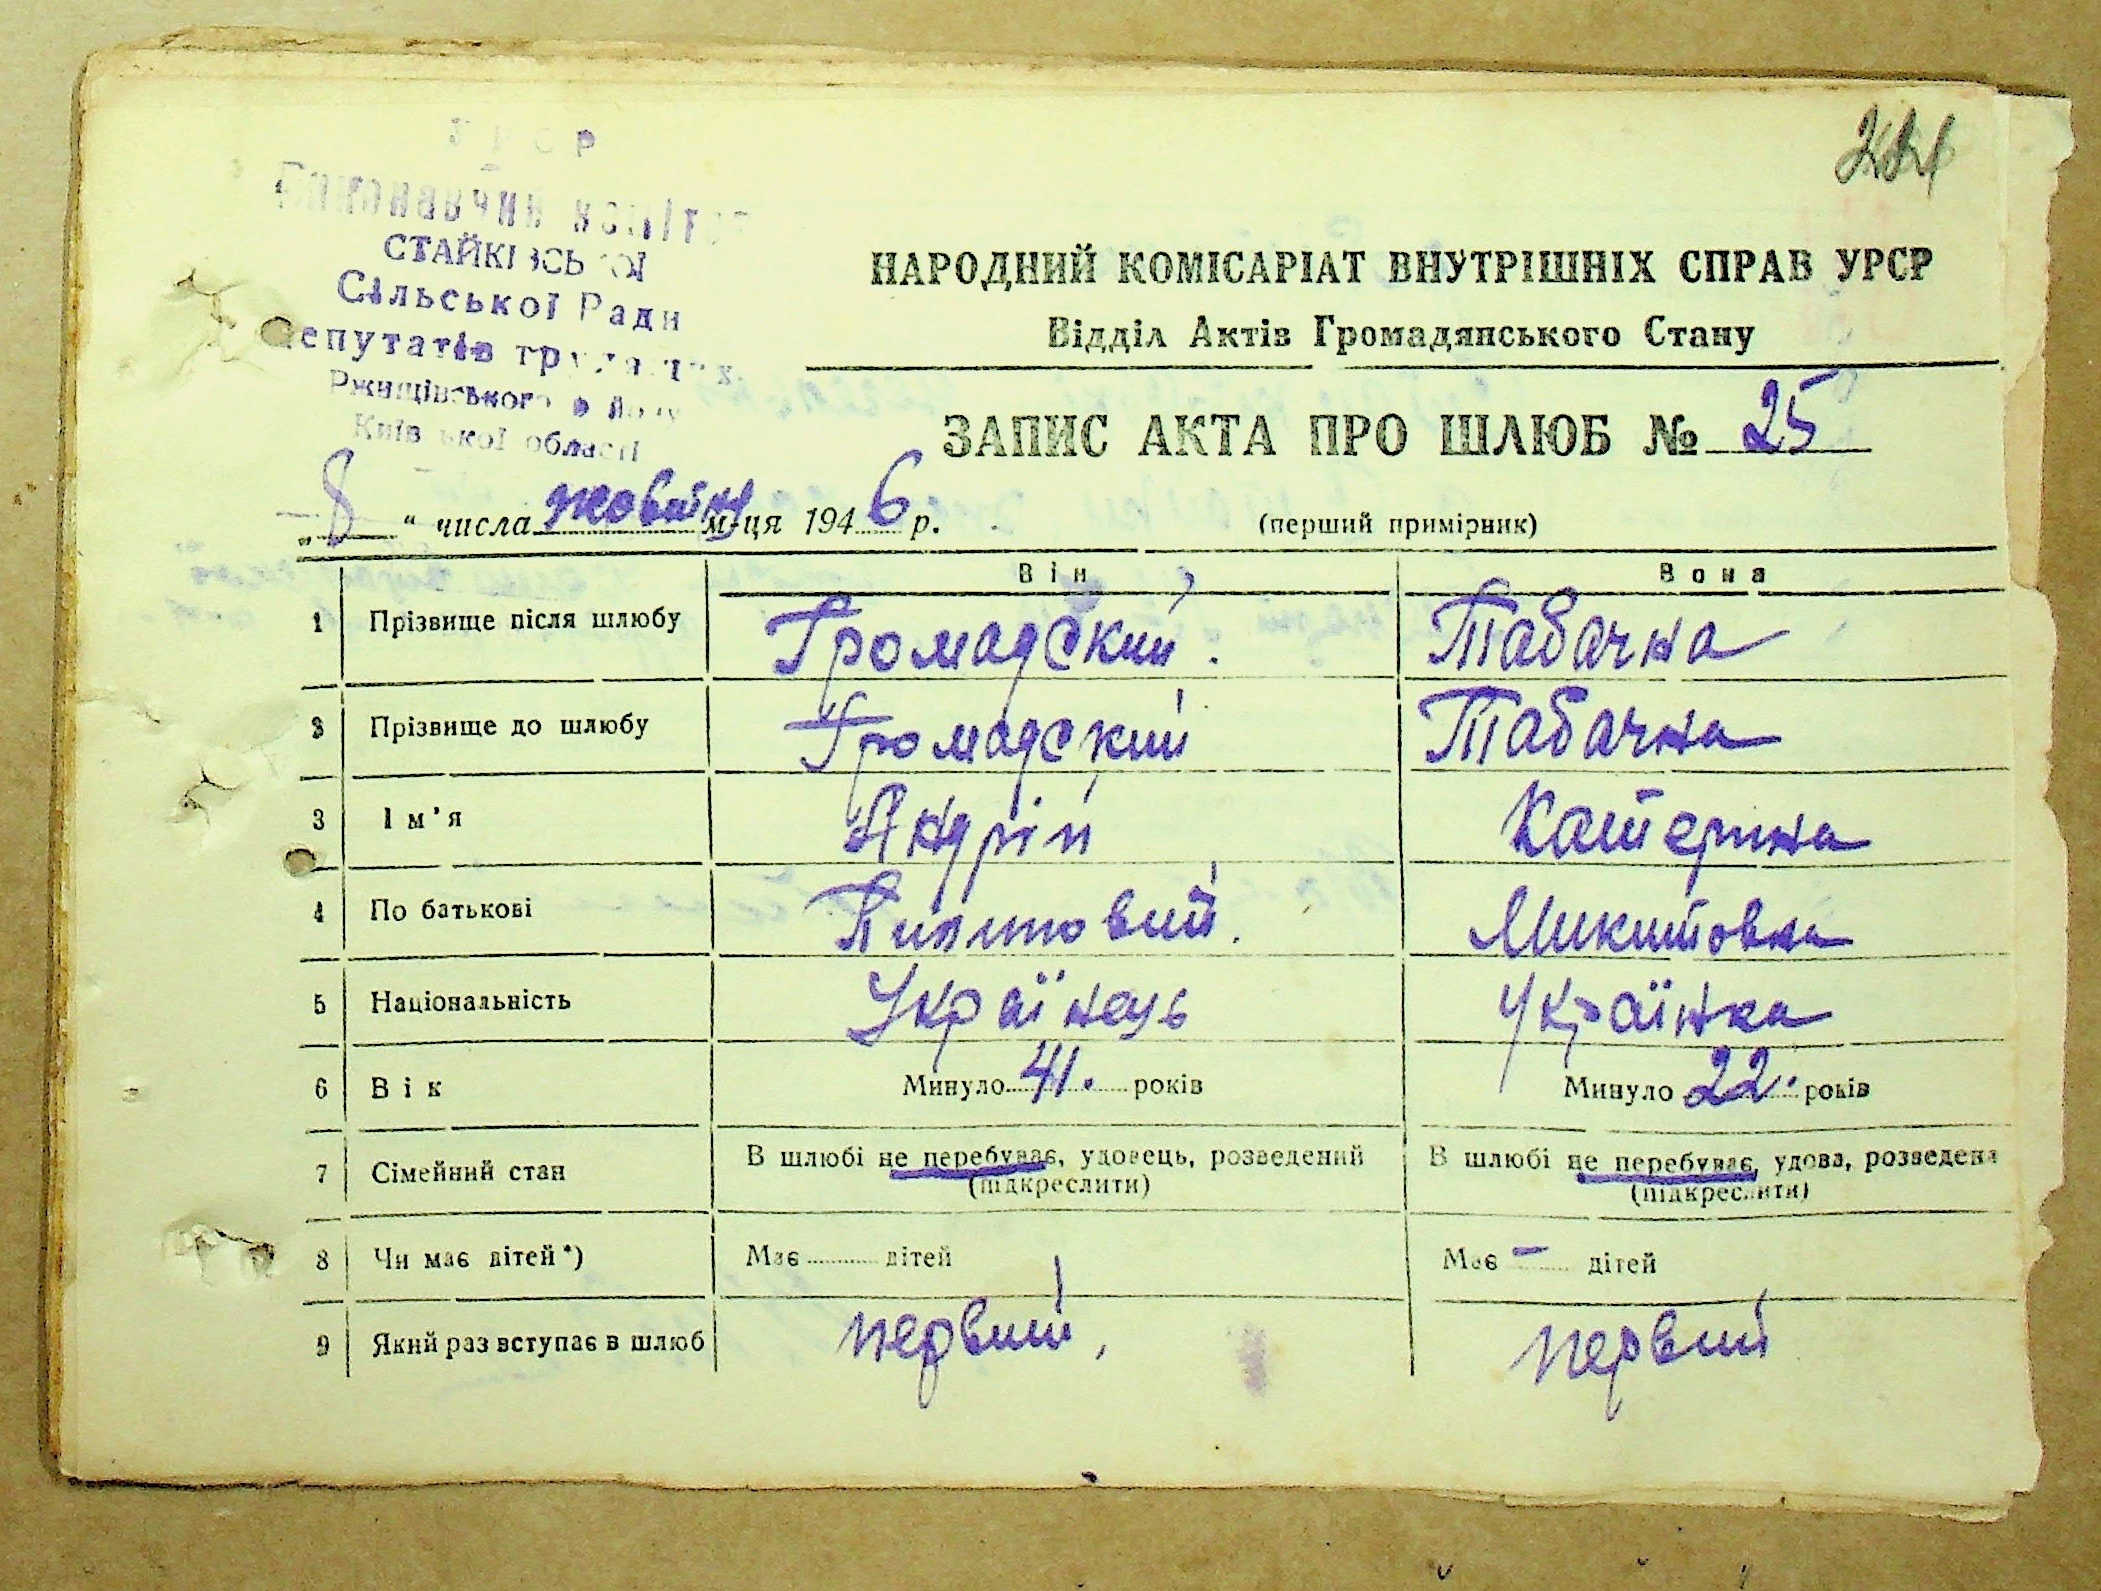 УРСР
Виконавчий комітет
СТАЙКІВСЬКОЇ
Сільської Ради
депутатів трудящих
Ржищівського району
Київської області
НАРОДНИЙ КОМІСАРІАТ ВНУТРІШНІХ СПРАВ УРСР
Відділ Актів Громадянського Стану
ЗАПИС АКТА ПРО ШЛЮБ № 25
„8“ числа жовтня м-ця 1946 р. (перший примірник)
Він Вона
1 Прізвище після шлюбу Громадский. Табачна
2 Прізвище до шлюбу Громадский Табачна
3 Ім'я Андрій Катерина
4 По батькові Пилиповий. Микитовна
5 Національність Українець Українка
6 Вік Минуло 41. років Минуло 22. років
7 Сімейний стан В шлюбі не перебуває, удовець, розведений В шлюбі не перебуває, удова, розведена
(підкреслити) (підкреслити)
8 Чи має дітей*) Має дітей Має – дітей
9 Який раз вступає в шлюб первий, первий